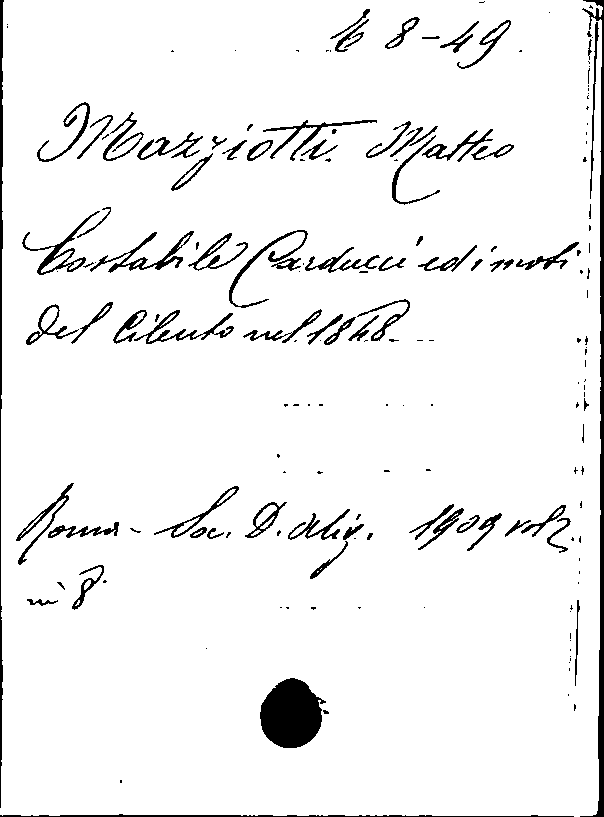 E 8-49
Mazziotti Matteo
Costabile Carducci ed i moti
del Cilento nel 1848
Roma - Soc. D. Alig. 1909 vol 2.
in 8.